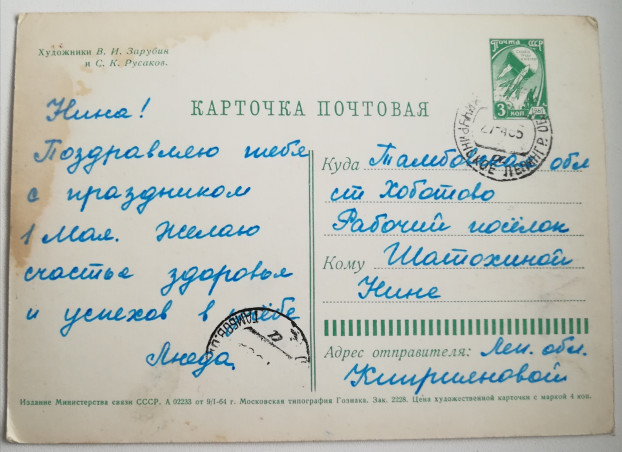 Художники В. И. Зарубин
и С. К. Русаков.
Почта СССР
3 КОП
КАРТОЧКА ПОЧТОВАЯ
Нина!
Поздравляю тебя
с праздником
1 Мая. Желаю
счастье здоровья
и успехов в учёбе
Люда
Куда Тамбовская обл
ст Хоботово
Рабочий посёлок
Кому Шатохиной
Нине
Адрес отправителя: Лен. обл.
Издание Министерства связи СССР. А 02233 от 9/1-64 г. Московская типография Гознака. Зак. 2228. Цена художественной карточки с маркой 4 коп.